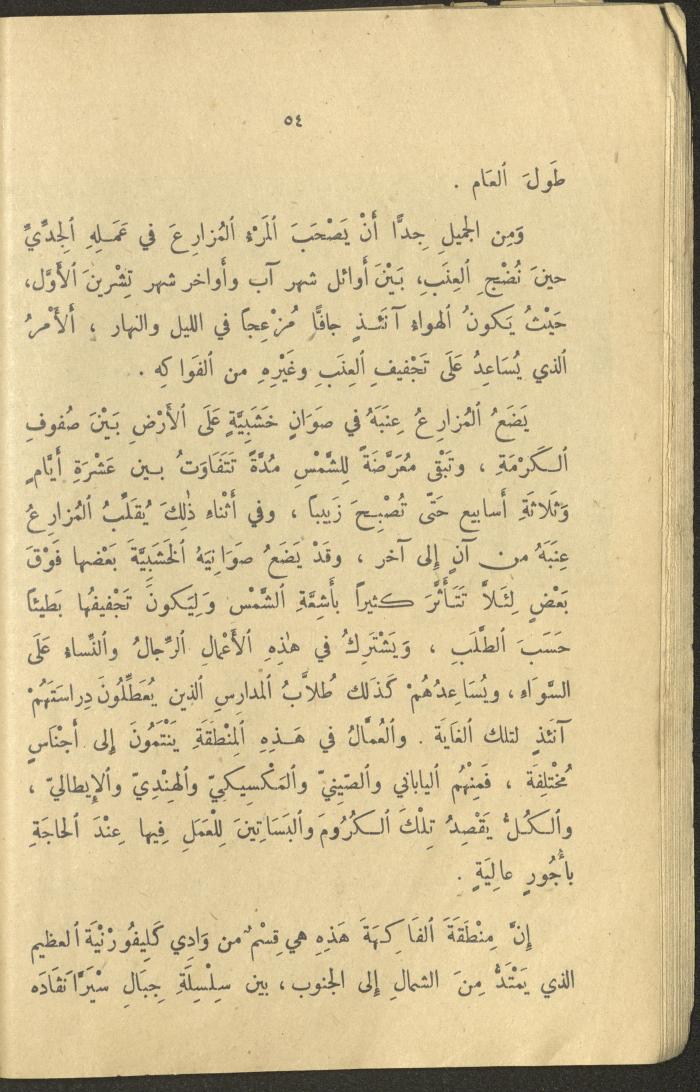 ٥٤
طَولَ ٱلعَام .
وَمِن الجميلِ جِدًّا أَنْ يَصْحَبَ ٱلمَرْءُ ٱلمُزارِعَ في عَمَـلِهِ ٱلجِدِّيِّ
حينَ نُضْجِ ٱلعِنَبِ، بَيْنَ أَوائل شهر آب وأَواخر شهر تِشْرينَ ٱلأَوَّل،
حَيْثُ يَكونُ ٱلهواءُ آنَئـذٍ جافًّا مُزْعِجاً في الليل والنهار ، أَلأَمْرُ
ٱلذي يُسَاعِدُ عَلَى تَجْفيفِ ٱلعِنَبِ وغَيْرِهِ من ٱلفَواكِهِ .
يَضَعُ ٱلمُزارِعُ عِنَبَهُ في صَوَانٍ خَشَبِيَّةٍ عَلَى ٱلأَرْضِ بَيْنَ صُفوفِ
ٱلـكَرْمَةِ ، وتَبْقَى مُعَرَّضَةً لِلشَّمْسِ مُدَّةً تَتَفَاوَتُ بـين عَشْرَةِ أَيَّامٍ
وَثَلَاثَةِ أَسابيع حَتَّى تُصْبِـحَ زَبيباً ، وفي أَثْناءِ ذٰلِكَ يُقَلِّبُ ٱلمُزارِعُ
عِنَبَهُ من آنٍ إِلى آخر ، وقَدْ يَضَعُ صَوَانِيَهُ ٱلخَشَبِيَّةَ بَعْضها فَوْقَ
بَعْضٍ لِئَـلاَّ تَتَـأَثَّرَ كثيراً بأَشِعَّةِ ٱلشَّمْس وَلِيَكونَ تَجْفيفُها بَطيئاً
حَسَبَ ٱلطَّلَبِ ، وَيَشْتَرِكُ في هٰذِهِ ٱلأَعْمالِ ٱلرِّجالُ وٱلنِّساءُ عَلَى
السَّوَاءِ، ويُسَاعِدُهُمْ كَذَلك طُلاَّبُ ٱلمَدارسِ ٱلذين يُعَطِّلُونَ دِراسَتَهُمْ
آنَئذٍ لتلك ٱلغَايَة . وٱلعُمَّالُ في هَـذِهِ ٱلمِنْطَقَةِ يَنْتَمُونَ إِلى أَجْناسٍ
مُخْتَلِفَةٍ ، فَمِنْهُم ٱلياباني وٱلصّينيّ وٱلمَكْسيكيّ وٱلهِنْدِيّ وٱلإِيطاليّ ،
وٱلـكُلُّ يَقْصِدُ تِلْكَ ٱلـكُرُومَ وٱلبَسَاتِينَ لِلْعَمَلِ فيها عِنْدَ ٱلحاجَةِ
بأُجُورٍ عالِيَةٍ .
إِنَّ مِنْطَقَةَ ٱلفَاكِهَةَ هَذِهِ هي قِسْمٌ من وَادِي كَلِيفُورْنْيَة ٱلعظيم
الذي يَمْتَدُّ مِنَ الشمالِ إِلى الجنوب ، بين سِلْسِلَةِ جِبَالِ سْيَرَّا نَفَادَه